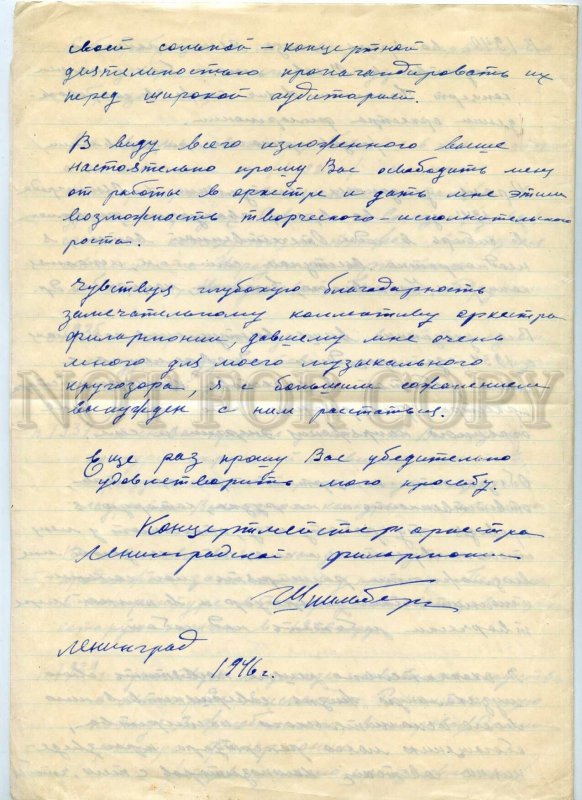 своей сольной - концертной
деятельностью пропагандировать их
перед широкой аудиторией.
В виду всего изложенного выше
настоятельно прошу Вас освободить меня
от работы в оркестре и дать мне этим
возможность творческого - исполнительского
роста.
Чувствуя глубокую благодарность
замечательному коллективу оркестра
филармонии, давшему мне очень
много для моего музыкального
кругозора, я с большим сожалением
вынужден с ним расстаться.
Еще раз прошу Вас убедительно
удовлетворить мою просьбу.
Концертмейстер оркестра
Ленинградской филармонии
Шпильберг
Ленинград
1946 г.
NOT FOR COPY